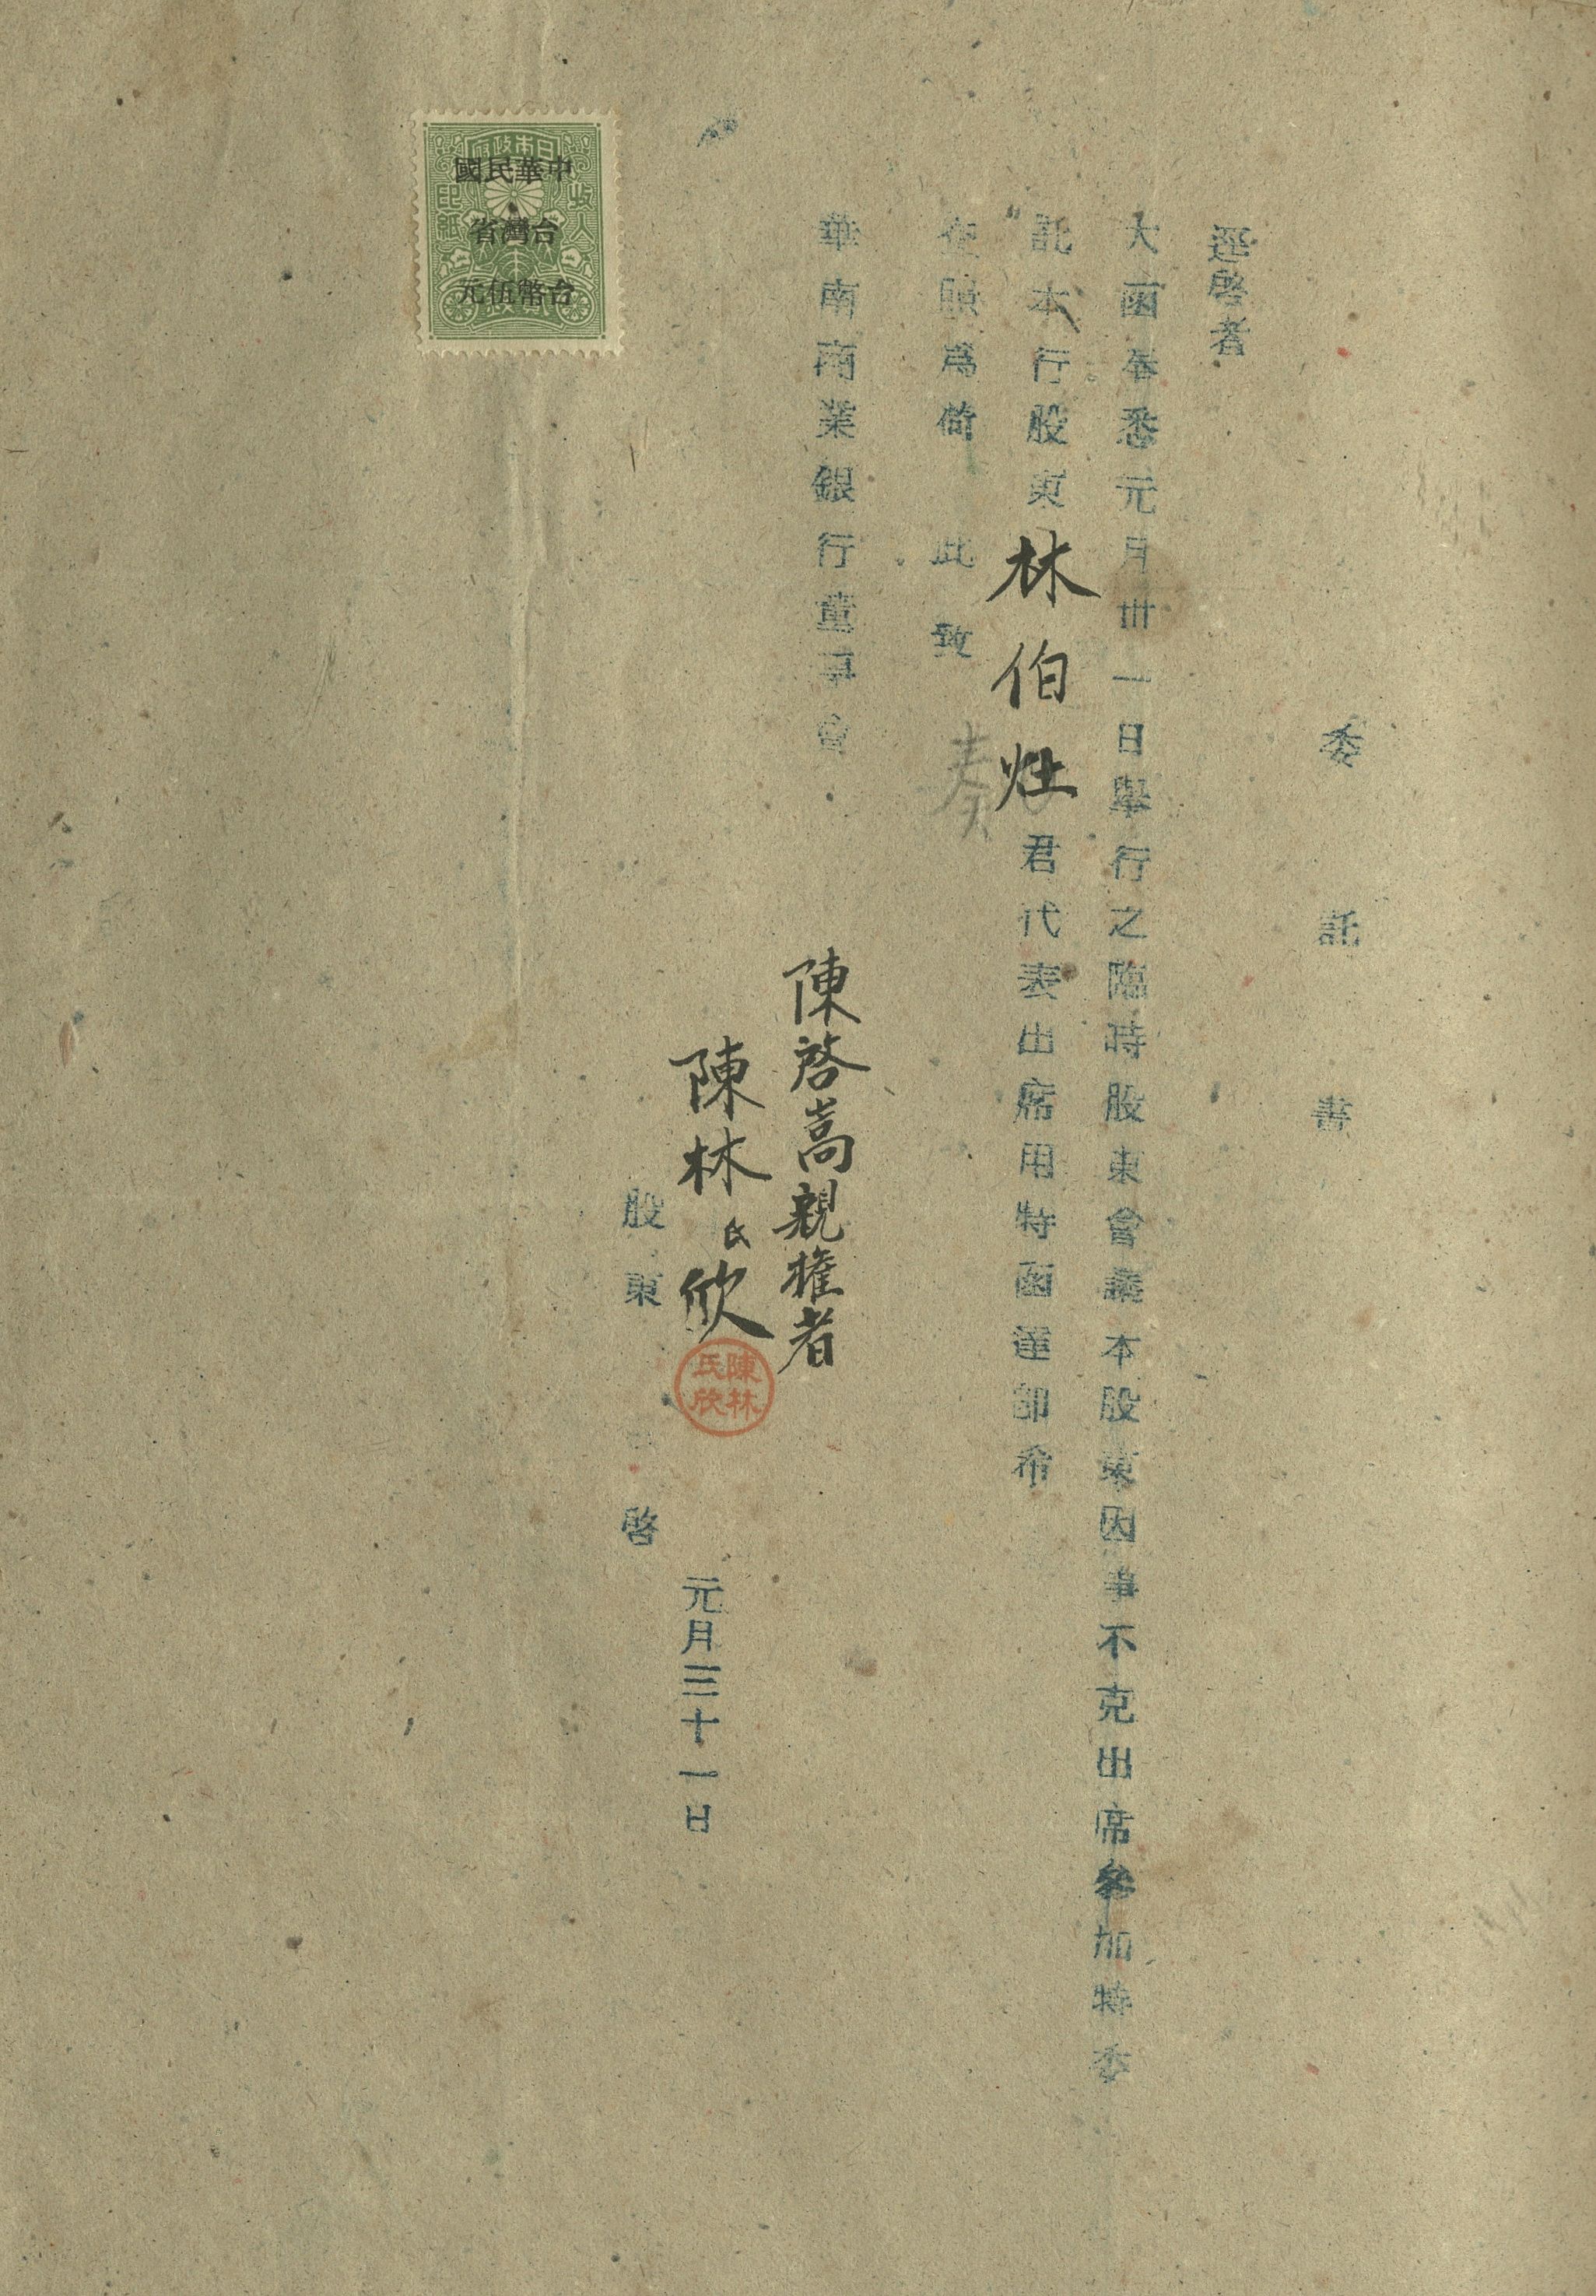 委託書
逕啓者
大函奉悉元月卅一日舉行之臨時股東會議本股東因事不克出席參加特委
託本行股東林伯灶君代表出席用特函達卽希
查照爲荷 此致
奏
華南商業銀行董事會
陳啓嵩親權者
陳林氏欣
陳林氏欣
元月三十一日
股東 啓
日本政府
收入印紙
中華民國
台灣省
台幣伍元